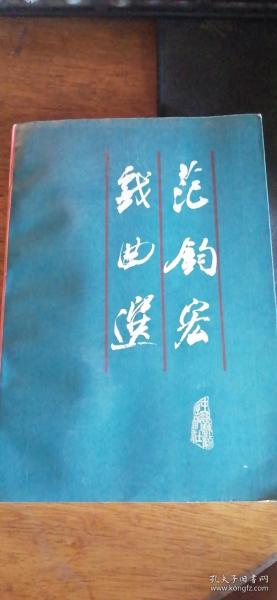 范钧宏
戏曲選
孔夫子旧书网
book.kongfz.com